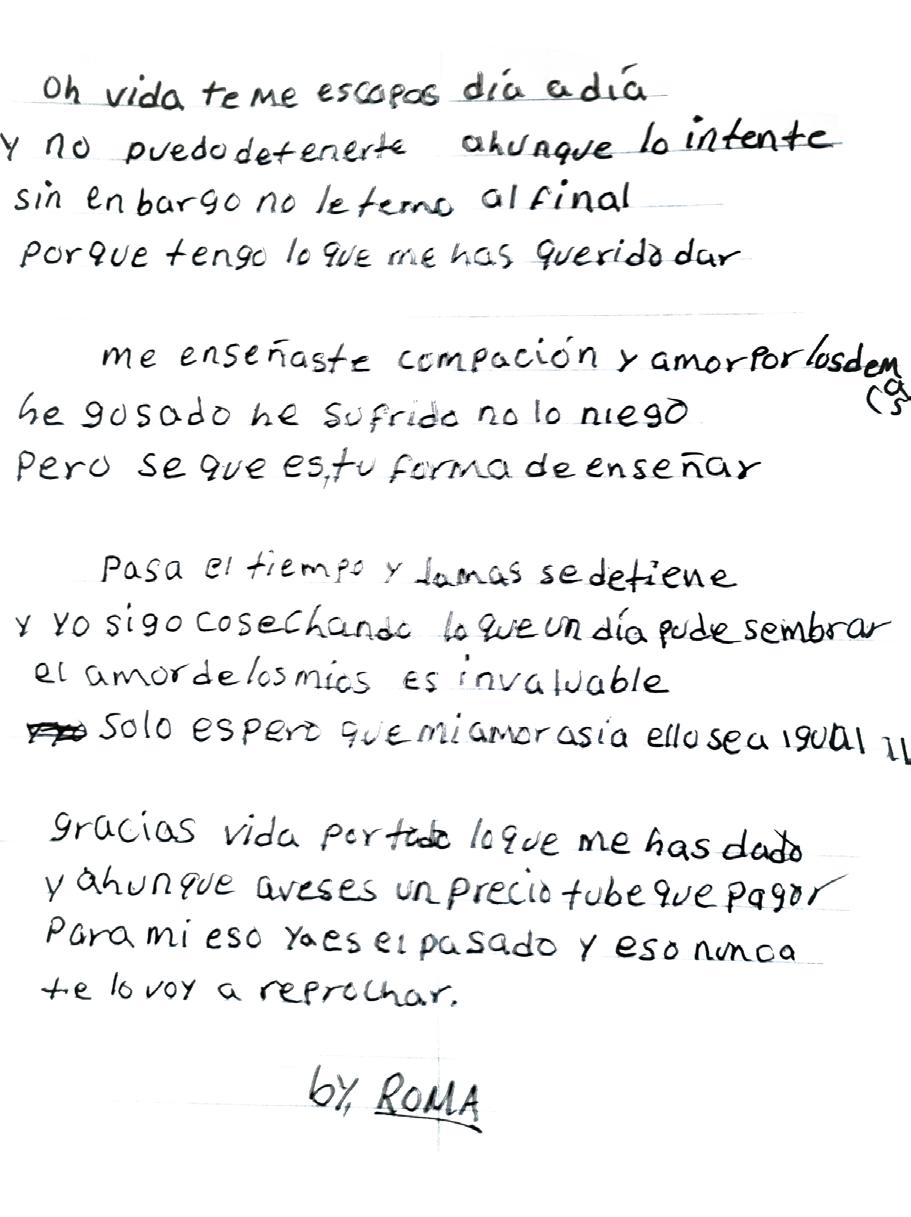 Oh vida te me escapas día a día
y no puedo detenerte ahunque lo intente
sin enbargo no le temo al final
porque tengo lo que me has querido dar
me enseñaste compación y amor por los demas
he gosado he sufrido no lo niego
pero se que es, tu forma de enseñar
Pasa el tiempo y Jamas se detiene
y yo sigo cosechando lo que un día pude sembrar
el amor de los mios es invaluable
solo espero que mi amor asia ello sea igual
gracias vida por todo lo que me has dado
y ahunque aveses un precio tube que pagar
Para mi eso ya es el pasado y eso nunca
te lo voy a reprochar.
by, ROMA